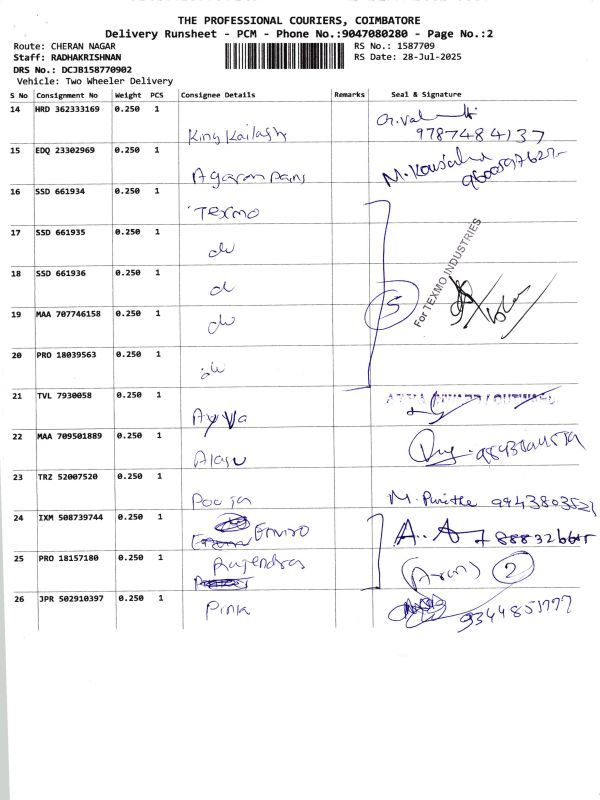 THE PROFESSIONAL COURIERS, COIMBATORE
Delivery Runsheet - PCM - Phone No.:9047080280 - Page No.:2
Route: CHERAN NAGAR RS No.: 1587709
Staff: RADHAKRISHNAN RS Date: 28-Jul-2025
DRS No.: DCJB158770902
Vehicle: Two Wheeler Delivery
S No Consignment No Weight PCS Consignee Details Remarks Seal & Signature
14 HRD 362333169 0.250 1
King Kailash 9787484137
15 EDQ 23302969 0.250 1
Agaram Pains
16 SSD 661934 0.250 1
Texmo
17 SSD 661935 0.250 1
do
18 SSD 661936 0.250 1
d
For TEXMO INDUSTRIES
5
19 MAA 707746158 0.250 1
do
20 PRO 18039563 0.250 1
do
21 TVL 7930058 0.250 1
Ayya
22 MAA 709501889 0.250 1
Alagu
23 TRZ 52007520 0.250 1
Pooja M. Punitha 9943803521
24 IXM 508739744 0.250 1
Enviro A. A
25 PRO 18157180 0.250 1
Rajendras (Arun) 2
26 JPR 502910397 0.250 1
Pink 9344851777